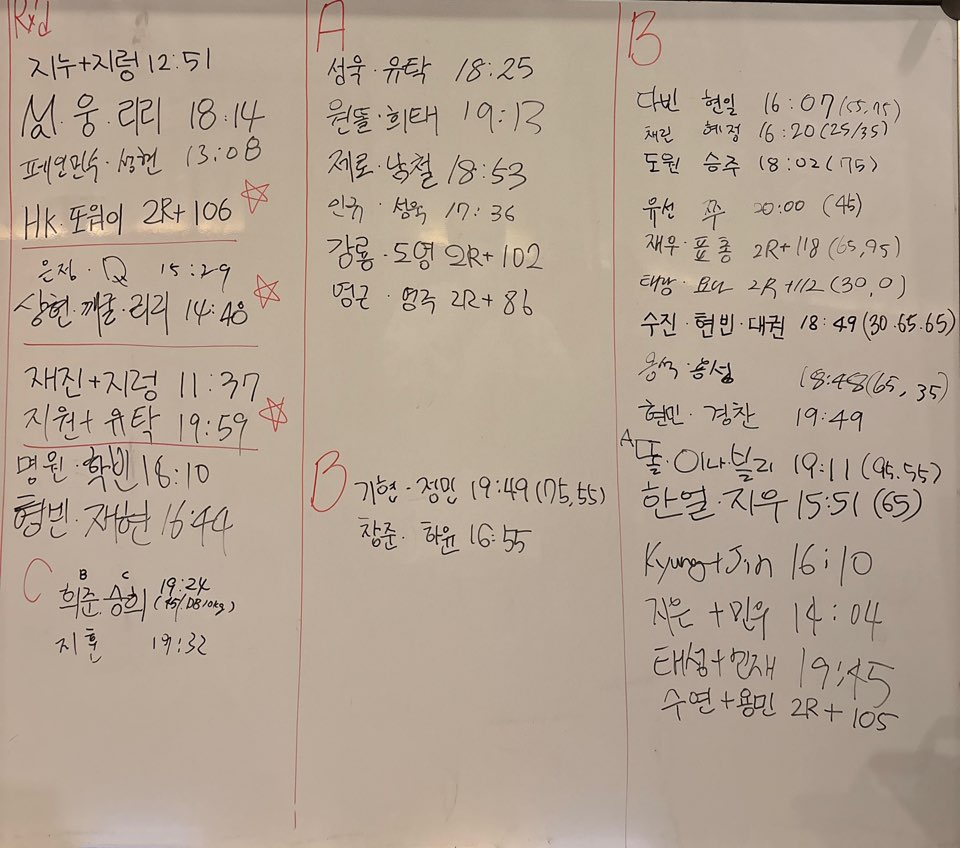 Rx'd
지누+지렁 12:51
웅·리리 18:14
페인민수·성현 13:08
HK·포워이 2R+106
은정·Q 15:29
상현·깨굴·리리 14:48
재진+지렁 11:37
지원+유탁 19:59
명원·학빈 16:10
형빈·재현 16:44
C
B C
희준·승희 19:24
(75/DB10kg)
지훈 19:32
A
성욱·유탁 18:25
원뜰·희태 19:13
제로·낙철 18:53
인규·성욱 17:36
강룡·도영 2R+102
명근·영주 2R+86
B
기현·정민 19:49(75,55)
창준·하윤 16:55
B
다빈 현일 16:07(55,75)
채린 혜정 16:20(25/35)
도원 승주 18:02(75)
유선 쭈 20:00 (45)
재우·표총 2R+118(65,95)
태랑·요나 2R+112(30,0)
수진·현빈·대권 18:49(30.65.65)
용석·용섬 18:48(65,35)
현민·경찬 19:49
A 돌·이나블리 19:11(95.55)
한얼·지우 15:51(65)
Kyung+Jin 16:10
지은+민우 14:04
태섭+민재 19:45
수연+용민 2R+105